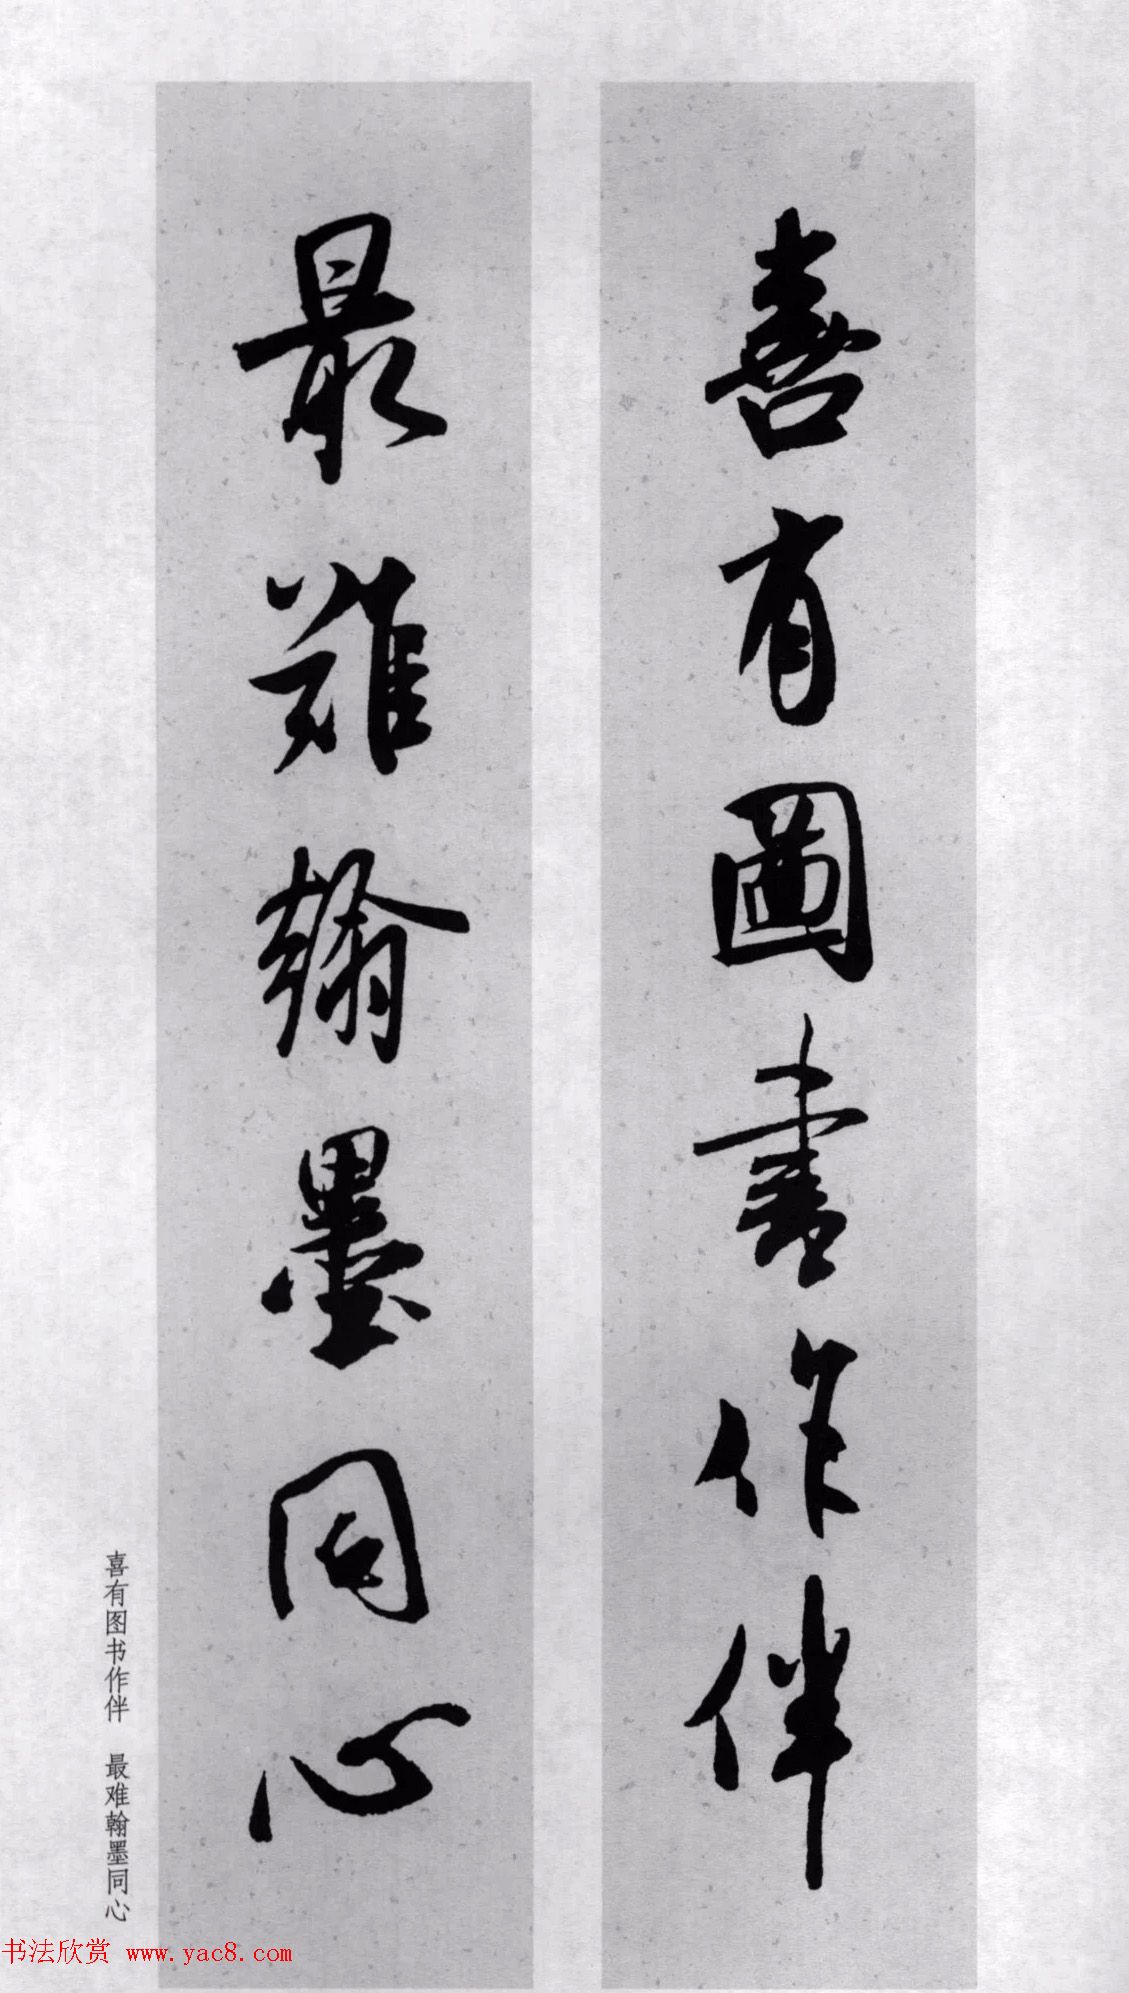 喜有圖書作伴
最難翰墨同心
喜有图书作伴 最难翰墨同心
书法欣赏 www.yac8.com